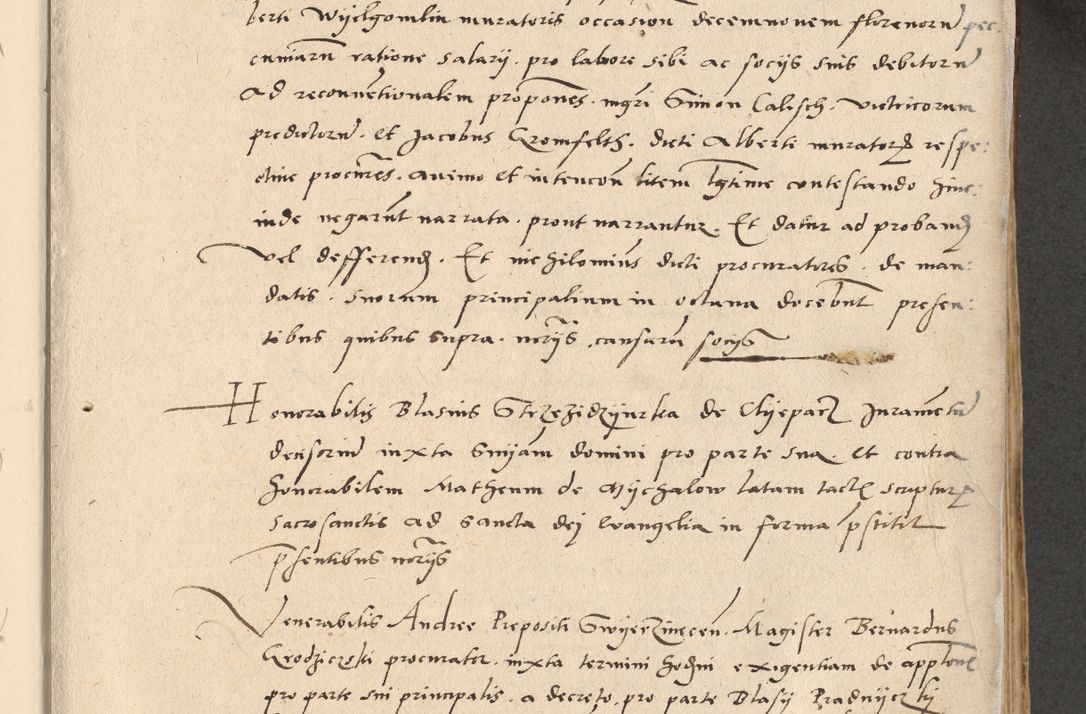 berti Wyelgomlin muratoris occasion decemnovem florenorū pec
cuniarū ratione salarÿ . pro labore sibi ac socÿs suis debitorū
ad reconvētionalem propones . mgri Simon Calisch . victricorum
predictorū . et Jacobus Gromfelth . dicti Alberti murator respe:
ctive procures . animo et intencoñ litem lgtime contestando hinc
inde negarūt narrata . prout narrantur . Et datur ad proband
vel defferend . Et nichilominus dicti procuratores . de man:
datis . suorum principalium in octava docebūt presen:
tibus quibus supra . notriis causarū socÿs
Honorabilis Blasius de Clyeparz Juramētū
decisoriū iuxta Snyam domini pro parte sua . et contra
honorabilem Matheum de Mychalow latam tactis scriptur
sacrosanctis ad sancta dei evangelia in forma pstitit
psentibus notriis
Venerabilis Andree Prepositi . Magister Bernardus
Grodziczski procurator . iuxta termini hodni exigentiam de appltōne
pro parte sui principalis . a decreto . pro parte Blasÿ Pradnyczky